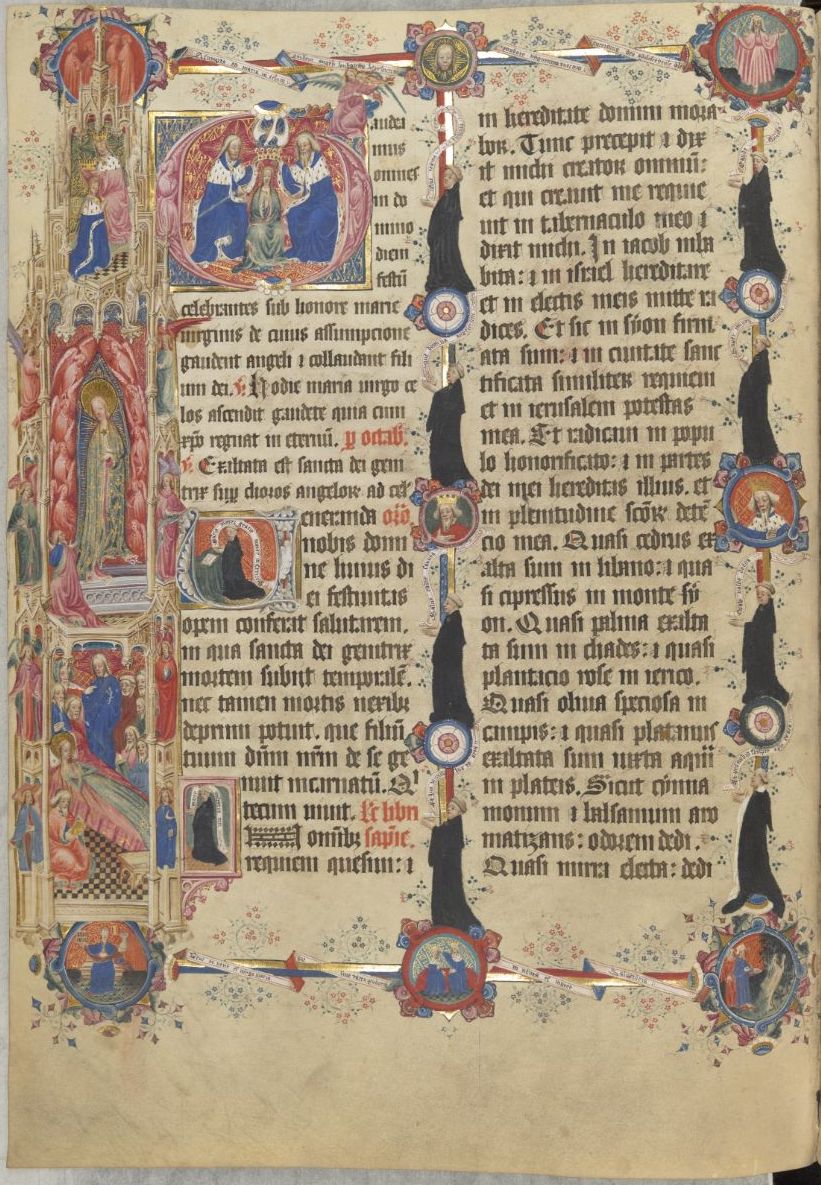 122
audea
mus
omnes
in do
mino
diem
festū
celebrantes sub honore marie
virginis de cuius assumpcione
gaudent angeli ⁊ collaudant fili
um dei. ℣. Hodie maria virgo ce
los ascendit gaudete quia cum
xp̄o regnat in eternū. p octab̄.
℣. Exaltata est sancta dei geni
trix sup̄ choros angelorꝝ ad cel̄
eneranda orō
nobis domi
ne huius di
ei festiuitas
opem conferat salutarem.
in qua sancta dei genitrix
mortem subijt temporalē.
nec tamen mortis nexibꝫ
deprimi potuit. que filiū
tuum dn̄m nr̄m de se ge
nuit incarnatū. Q̄
tecum viuit. Lc̄ libri
omībꝫ sapīe.
requiem quesiui: ⁊
in hereditate domini mora
bor. Tunc precepit ⁊ dix
it michi creator omniū:
et qui creauit me requie
uit in tabernaculo meo ⁊
dixit michi. In iacob inha
bita: ⁊ in israel hereditare
et in electis meis mitte ra
dices. Et sic in syon firm
ata sum: ⁊ in ciuitate sanc
tificata similiter requieui
et in ierusalem potestas
mea. Et radicaui in popu
lo honorificato: ⁊ in partes
dei mei hereditas illius. et
in plenitudine scōrꝝ detē
cio mea. Quasi cedrus ex
alta sum in libano: ⁊ qua
si cipressus in monte sy
on. Quasi palma exalta
ta sum in chades: ⁊ quasi
plantacio rose in ierico.
Quasi oliua speciosa in
campis: ⁊ quasi platanus
exaltata sum iuxta aquā
in plateis. Sicut cynna
momum ⁊ balsamum aro
matizans: odorem dedi.
Quasi mirra electa: dedi